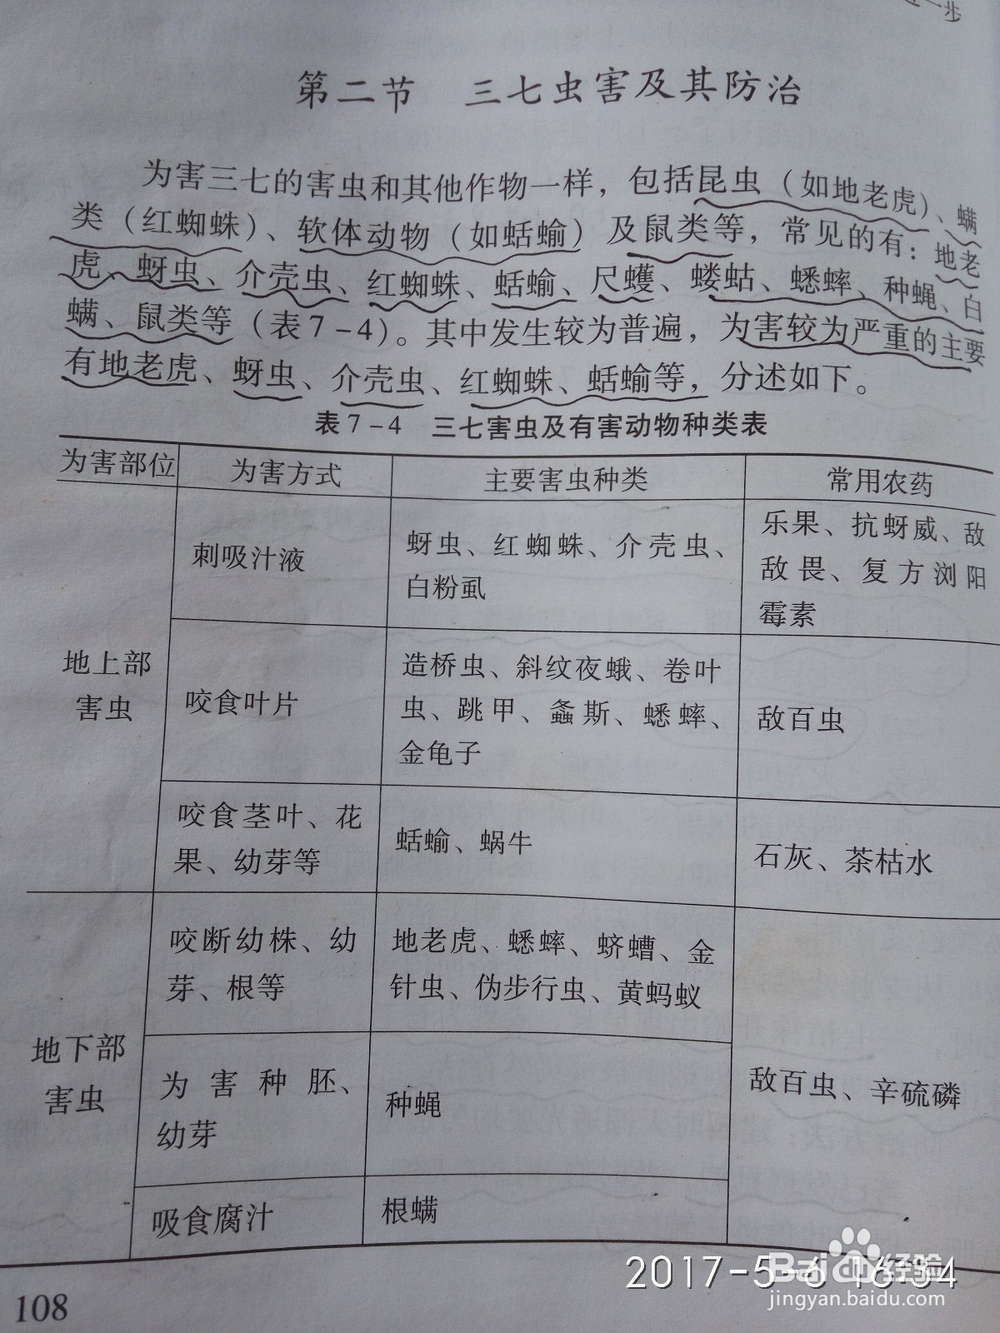 一步
第二节 三七虫害及其防治
为害三七的害虫和其他作物一样，包括昆虫（如地老虎）、螨
类（红蜘蛛）、软体动物（如蛞蝓）及鼠类等，常见的有：地老
虎、蚜虫、介壳虫、红蜘蛛、蛞蝓、尺蠖、蝼蛄、蟋蟀、种蝇、白
螨、鼠类等（表7-4）。其中发生较为普遍，为害较为严重的主要
有地老虎、蚜虫、介壳虫、红蜘蛛、蛞蝓等，分述如下。
表7-4 三七害虫及有害动物种类表
为害部位 为害方式 主要害虫种类 常用农药
地上部
害虫
刺吸汁液
蚜虫、红蜘蛛、介壳虫、
白粉虱
乐果、抗蚜威、敌
敌畏、复方浏阳
霉素
咬食叶片
造桥虫、斜纹夜蛾、卷叶
虫、跳甲、螽斯、蟋蟀、
金龟子
敌百虫
咬食茎叶、花
果、幼芽等
蛞蝓、蜗牛
石灰、茶枯水
地下部
害虫
咬断幼株、幼
芽、根等
地老虎、蟋蟀、蛴螬、金
针虫、伪步行虫、黄蚂蚁
敌百虫、辛硫磷
为害种胚、
幼芽
种蝇
吸食腐汁
根螨
108
2017-5-6 16:34
Baidu经验
jingyan.baidu.com